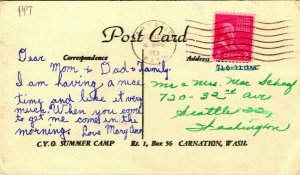 PP3
Post Card
Correspondence
Address
Dear
Mom & Dad & Family.
I am having a nice
time and like it very
much. When you come
to get me come in the
morning. Love Mary Ann
Mr & Mrs. Mac Schaaf
720-32nd Ave
Seattle 22,
Washington
C.Y.O. SUMMER CAMP Rt. 1, Box 56 CARNATION, WASH.